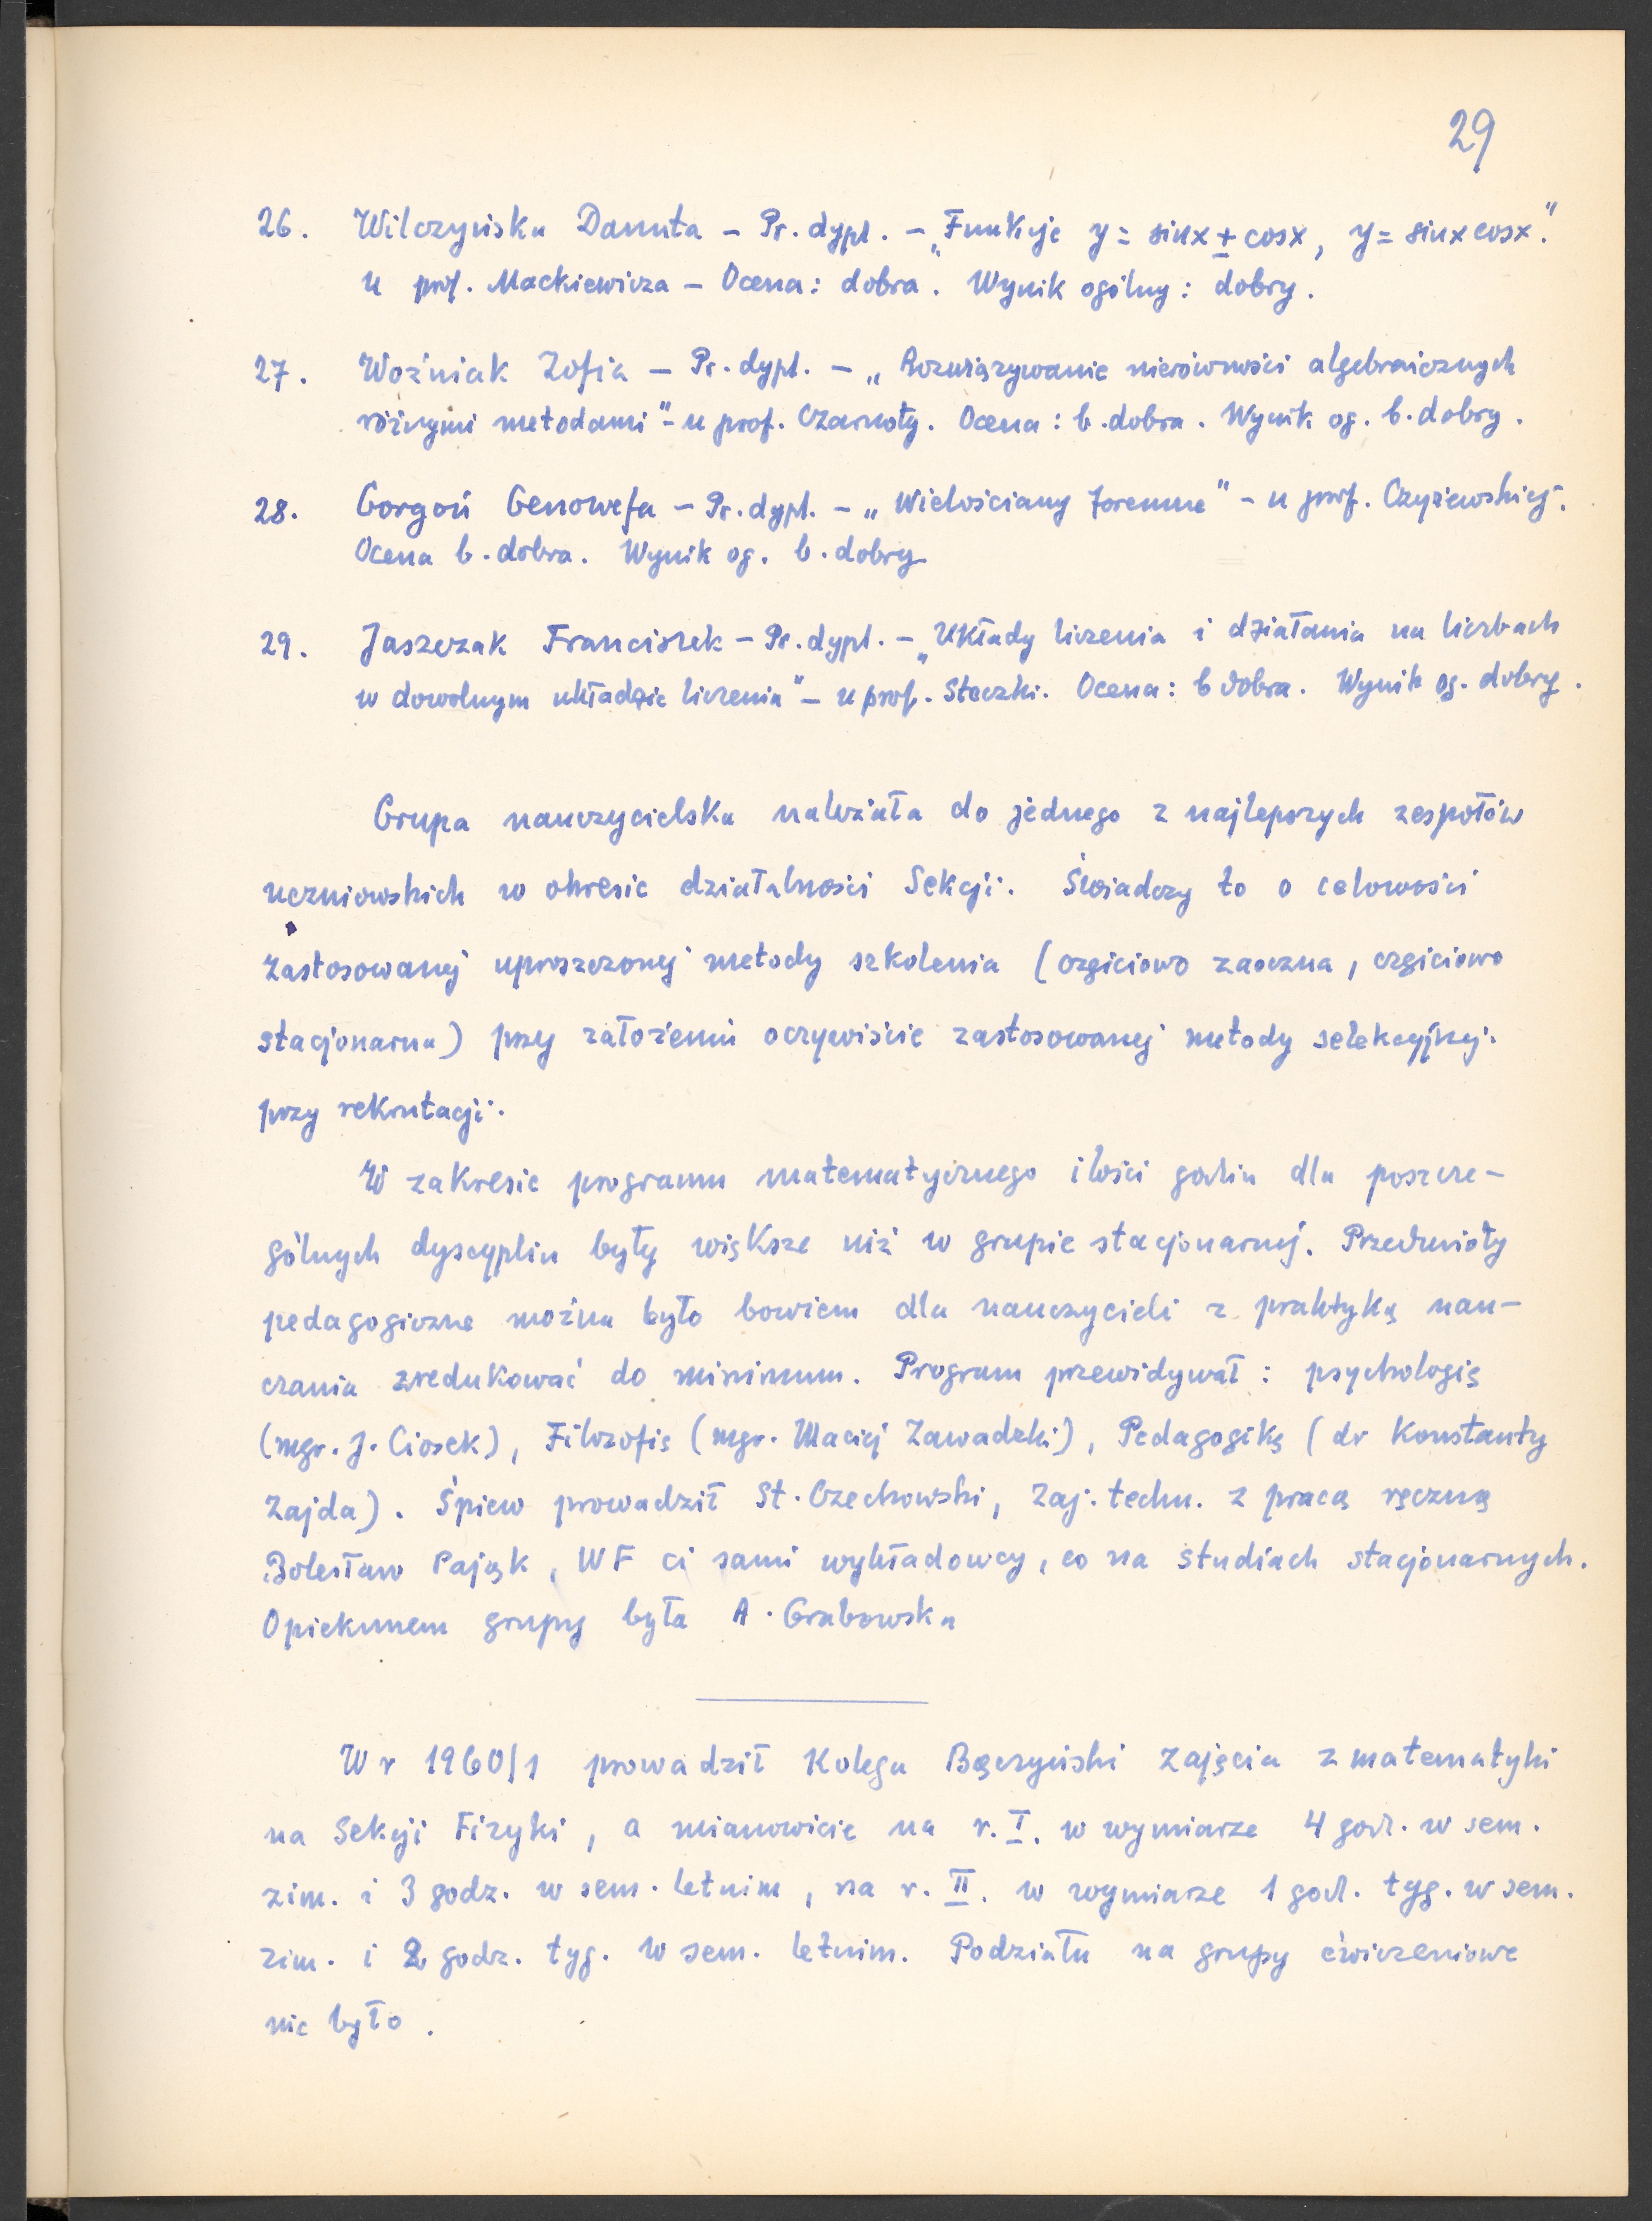 29
26. Wilczyńska Danuta – Pr. dypl. – „Funkcje y = sinx ± cosx, y = sinx cosx".
u prof. Mackiewicza – Ocena: dobra. Wynik ogólny: dobry.
27. Woźniak Zofia – Pr. dypl. – „Rozwiązywanie nierówności algebraicznych
różnymi metodami" – u prof. Czarnoty. Ocena: b. dobra. Wynik og. b. dobry.
28. Gorgoń Genowefa – Pr. dypl. – „Wielościany foremne" – u prof. Czyżewskiej.
Ocena b. dobra. Wynik og. b. dobry
29. Jaszczak Franciszek – Pr. dypl. – „Układy liczenia i działania na liczbach
w dowolnym układzie liczenia" – u prof. Steczki. Ocena: b dobra. Wynik og. dobry.
Grupa nauczycielska należała do jednego z najlepszych zespołów
uczniowskich w okresie działalności Sekcji. Świadczy to o celowości
zastosowanej uproszczonej metody szkolenia (częściowo zaoczna, częściowo
stacjonarna) przy założeniu oczywiście zastosowanej metody selekcyjnej
przy rekrutacji.
W zakresie programu matematycznego ilości godzin dla poszcze-
gólnych dyscyplin były większe niż w grupie stacjonarnej. Przedmioty
pedagogiczne można było bowiem dla nauczycieli z praktyką nau-
czania zredukować do minimum. Program przewidywał: psychologię
(mgr. J. Ciosek), Filozofię (mgr. Maciej Zawadzki), Pedagogikę (dr Konstanty
Zajda). Śpiew prowadził St. Czechowski, Zaj. techn. z pracą ręczną
Bolesław Pająk, WF ci sami wykładowcy, co na studiach stacjonarnych.
Opiekunem grupy była A. Grabowska
W r 1960/1 prowadził Kolega Bączyński zajęcia z matematyki
na Sekcji Fizyki, a mianowicie na r. I. w wymiarze 4 godz. w sem.
zim. i 3 godz. w sem. letnim, na r. II. w wymiarze 1 godz. tyg. w sem.
zim. i 2 godz. tyg. w sem. letnim. Podziału na grupy ćwiczeniowe
nie było.